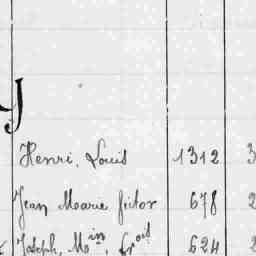 J
Henri, Louis 1312 3
Jean Marie Victor 678 2
Joseph, Min, 624 2